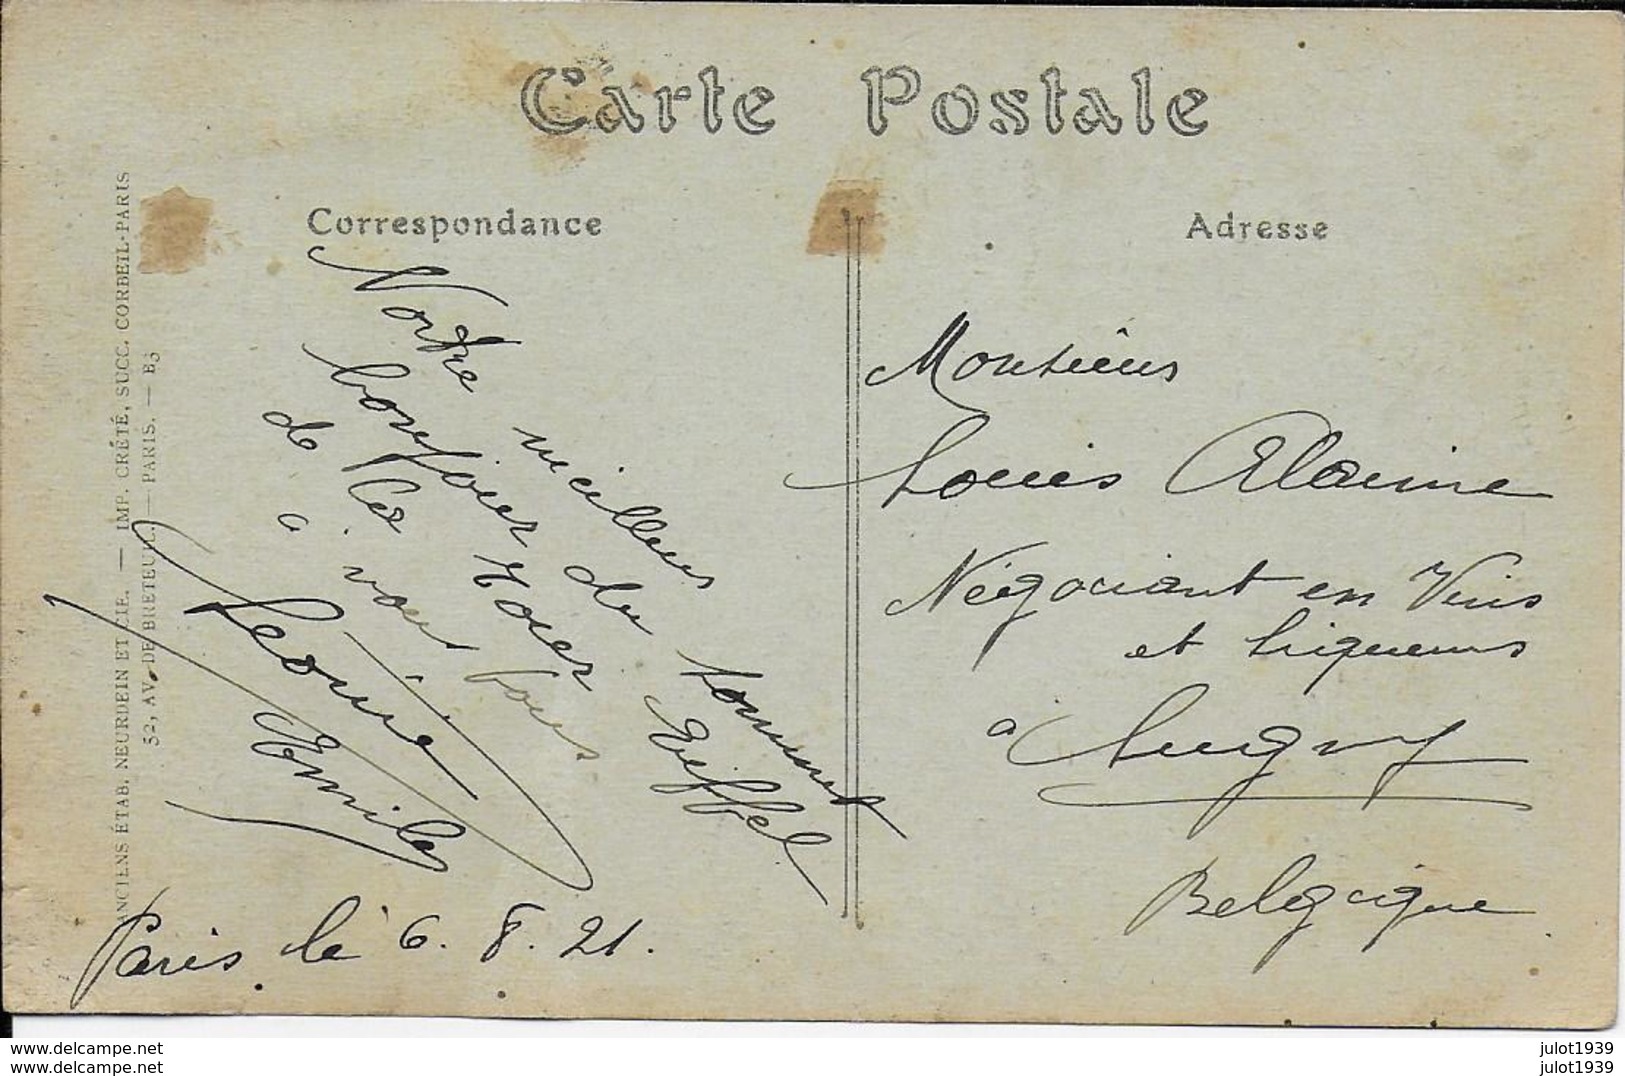 Carte Postale
Correspondance
Adresse
ANCIENS ÉTAB. NEURDEIN ET CIE. — IMP. CRÉTÉ, SUCC. CORBEIL-PARIS
52, AV. DE BRETEUIL. — PARIS. — E3
Notre meilleur
bonjour du sommet
de la Tour Eiffel
à vous tous
Léonie
Emile
Paris le 6. 8. 21.
Monsieur
Louis Alavine
Négociant en Vins
et Liqueurs
à Cuigny
Belgique
www.delcampe.net
www.delcampe.net
julot1939
julot1939